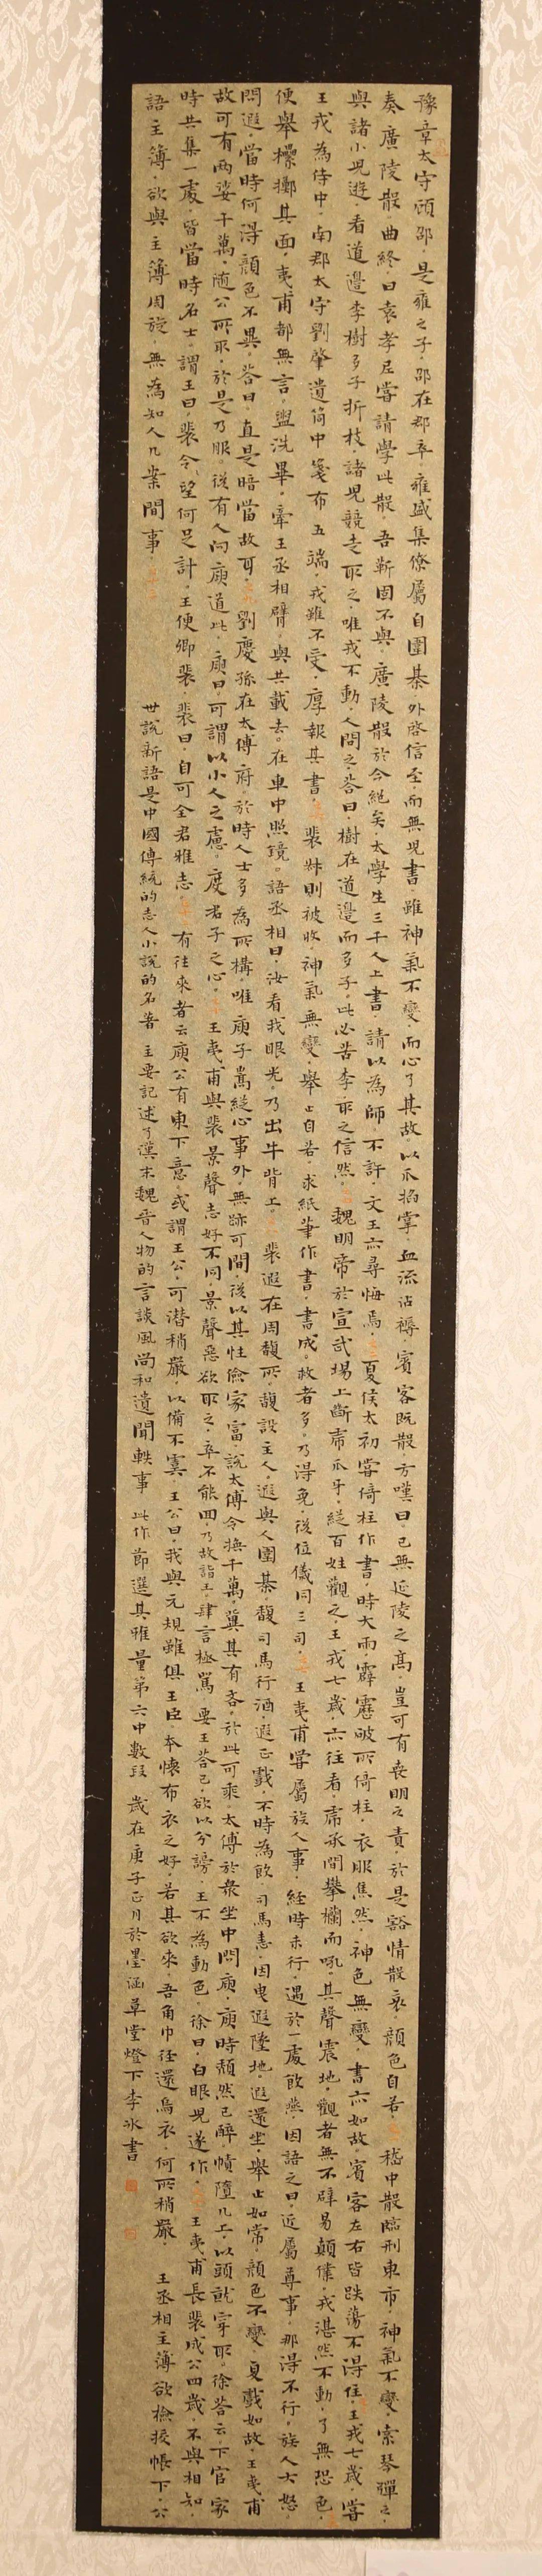 豫章太守顧邵。是雍之子。邵在郡卒。雍盛集僚屬。自圍棊。外啓信至。而無兒書。雖神氣不變。而心了其故。以爪掐掌。血流沾褥。賓客既散。方嘆曰。已無延陵之高。豈可有喪明之責。於是豁情散哀。顔色自若。嵇中散臨刑東市。神氣不變。索琴彈之。
奏廣陵散。曲終曰。袁孝尼嘗請學此散。吾靳固不與。廣陵散於今絕矣。太學生三千人上書。請以為師。不許。文王亦尋悔焉。夏侯太初嘗倚柱作書。時大雨。霹靂破所倚柱。衣服焦然。神色無變。書亦如故。賓客左右皆跌蕩不得住。王戎七歲。嘗
與諸小兒遊。看道邊李樹多子折枝。諸兒競走取之。唯戎不動。人問之。答曰。樹在道邊而多子。此必苦李。取之信然。魏明帝於宣武場上斷虎爪牙。縱百姓觀之。王戎七歲。亦往看。虎承間攀欄而吼。其聲震地。觀者無不辟易顛仆。戎湛然不動。了無恐色。
王戎為侍中。南郡太守劉肇遺筒中箋布五端。戎雖不受。厚報其書。裴叔則被收。神氣無變。舉止自若。求紙筆作書。書成。救者多。乃得免。後位儀同三司。王夷甫嘗屬族人事。經時未行。遇於一處飲燕。因語之曰。近屬尊事。那得不行。族人大怒。
便舉樏擲其面。夷甫都無言。盥洗畢。牽王丞相臂。與共載去。在車中照鏡。語丞相曰。汝看我眼光。乃出牛背上。裴遐在周馥所。馥設主人。遐與人圍棊。馥司馬行酒。遐正戲。不時為飲。司馬恚。因曳遐墜地。遐還坐。舉止如常。顔色不變。復戲如故。王夷甫
問遐。當時何得顔色不異。答曰。直是暗當故耳。劉慶孫在太傅府。於時人士多為所構。唯庾子嵩縱心事外。無跡可間。後以其性儉家富。說太傅令換千萬。冀其有吝。於此可乘。太傅於衆坐中問庾。庾時頹然已醉。幘墮几上。以頭就穿取。徐答云。下官家
故可有兩娑千萬。隨公所取。於是乃服。後有人向庾道此。庾曰。可謂以小人之慮。度君子之心。王夷甫與裴景聲志好不同。景聲惡欲取之。卒不能回。乃故詣王。肆言極罵。要王答己。欲以分謗。王不為動色。徐曰。白眼兒遂作。王夷甫長裴成公四歲。不與相知。
時共集一處。皆當時名士。謂王曰。裴令令望何足計。王便卿裴。裴曰。自可全君雅志。有往來者云。庾公有東下意。或謂王公。可潛稍嚴。以備不虞。王公曰。我與元規雖俱王臣。本懷布衣之好。若其欲來。吾角巾徑還烏衣。何所稍嚴。王丞相主簿欲檢校帳下。公
語主簿。欲與主簿周旋。無為知人几案間事。
世說新語是中國傳統的志人小說的名著 主要記述了漢末魏晉人物的言談風尚和遺聞軼事 此作節選其雅量第六中數段 歲在庚子正月於墨涵草堂燈下李冰書